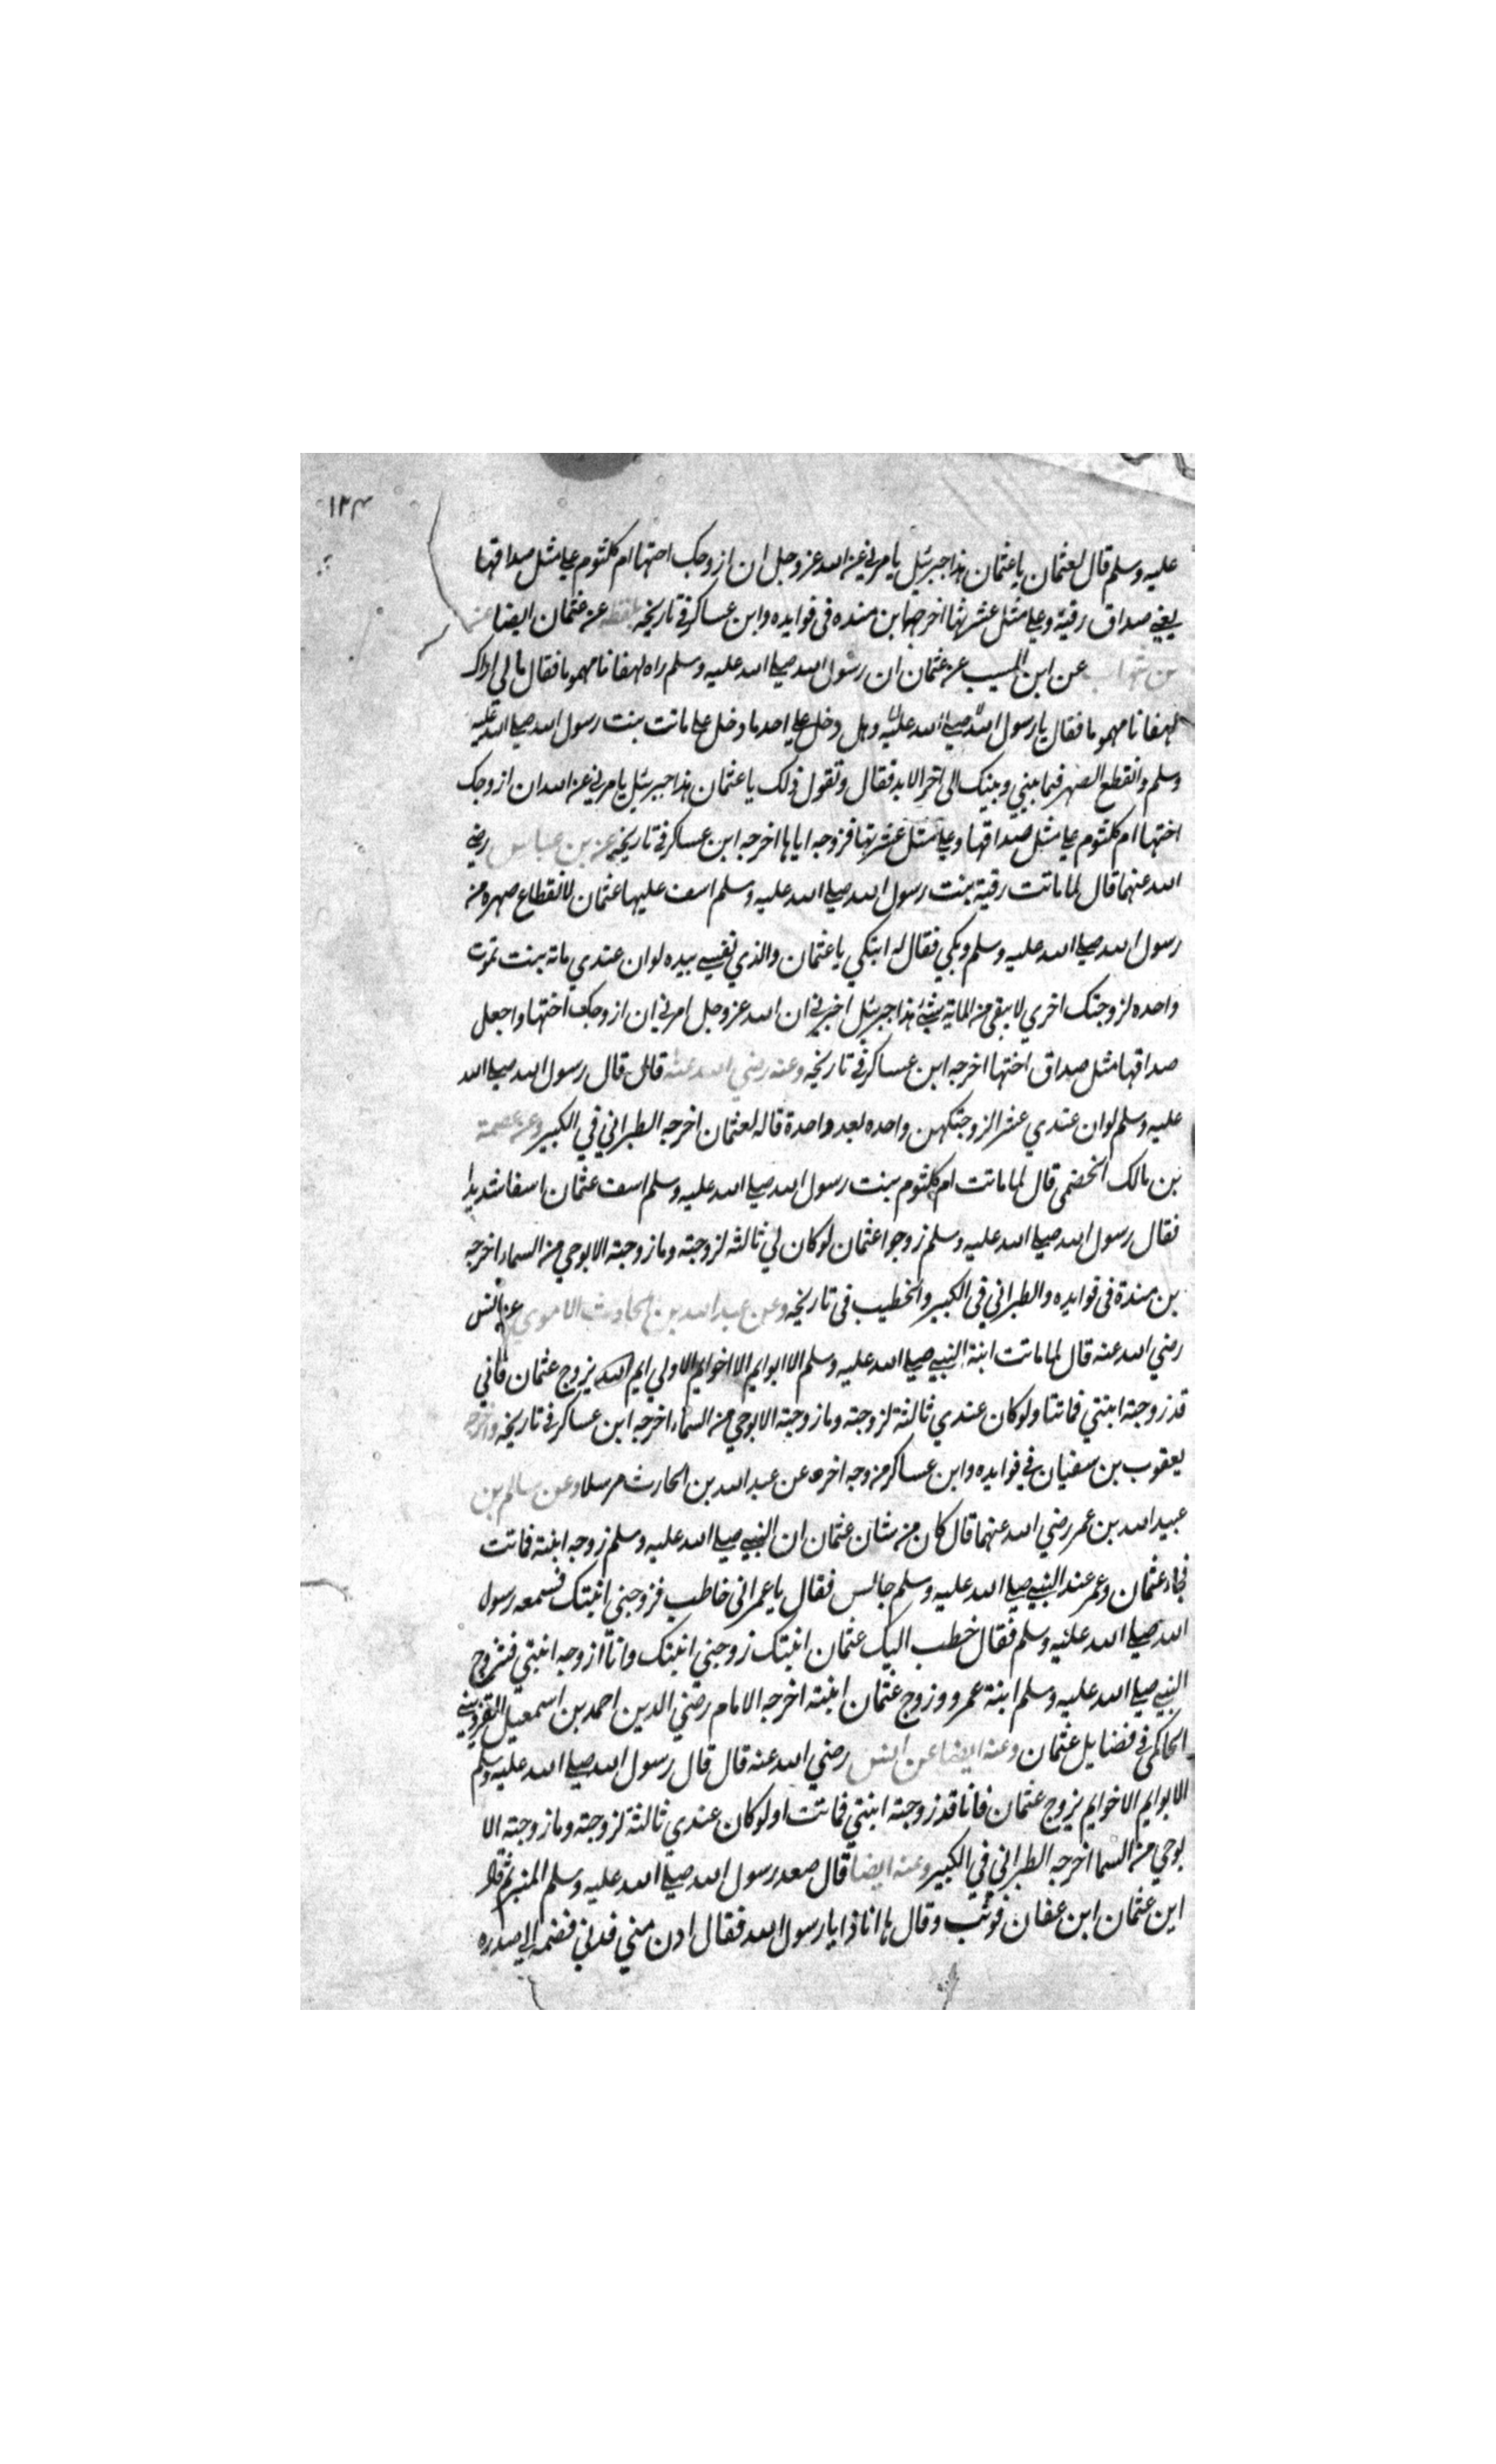 ١٢٣
عليه وسلم قال لعثمان يا عثمان هذا جبرئيل يامرني عن الله عز وجل ان ازوجك اختها ام كلثوم علي مثل صداقها
يعني صداق رقية وعلي مثل عشرتها اخرجها بن منده في فوايده وابن عساكر في تاريخه بلفظه عن عثمان ايضا عن
بن شهاب عن ابن المسيب عن عثمان ان رسول الله صلي الله عليه وسلم راه لهفانا مهموما فقال مالي اراك
لهفانا مهموما فقال يا رسول الله صلي الله عليك وهل دخل علي احد ما دخل علي ماتت بنت رسول الله صلي الله عليه
وسلم وانقطع الصهر فيما بيني وبينك الي اخر الابد فقال وتقول ذلك يا عثمان هذا جبرئيل يامرني عن الله ان ازوجك
اختها ام كلثوم علي مثل صداقها وعلي مثل عشرتها فزوجه اياها اخرجه ابن عساكر في تاريخه عن بن عباس رضي
الله عنهما قال لما ماتت رقية بنت رسول الله صلي الله عليه وسلم اسف عليها عثمان لانقطاع صهره من
رسول الله صلي الله عليه وسلم وبكي فقال له اتبكي يا عثمان والذي نفسي بيده لو ان عندي ماة بنت تموت
واحده لزوجتك اخري لا يبقي من الماية شيئ هذا جبرئيل اخبرني ان الله عز وجل امرني ان ازوجك اختها واجعل
صداقها مثل صداق اختها اخرجه ابن عساكر في تاريخه وعنه رضي الله عنه قال قال رسول الله صلي الله
عليه وسلم لو ان عندي عشرا لزوجتكهن واحده بعد واحدة قاله لعثمان اخرجه الطبراني في الكبير وعن عصمة
بن مالك الخضمي قال لما ماتت ام كلثوم بنت رسول الله صلي الله عليه وسلم اسف عثمان اسفا شديدا
فقال رسول الله صلي الله عليه وسلم زوجوا عثمان لو كان لي ثالثه لزوجته وما زوجته الا بوحي من السماء اخرجه
بن مندة في فوايده والطبراني في الكبير والخطيب في تاريخه وعن عبد الله بن الحارث الاموي عن انس
رضي الله عنه قال لما ماتت ابنة النبي صلي الله عليه وسلم الا ابو ايم الا اخو ايم الا ولي ايم يزوج عثمان فاني
قد زوجته ابنتي فماتتا ولو كان عندي ثالثة لزوجته وما زوجته الا بوحي من السماء اخرجه ابن عساكر في تاريخه واخرجه
يعقوب بن سفيان في فوايده وابن عساكر من وجه اخر عن عبد الله بن الحارث مرسلا وعن سالم بن
عبيد الله بن عمر رضي الله عنهما قال كان من شان عثمان ان النبي صلي الله عليه وسلم زوجه ابنته فماتت
فجاء عثمان وعمر عند النبي صلي الله عليه وسلم جالس فقال يا عمر اني خاطب فزوجني ابنتك فسمعه رسول
الله صلي الله عليه وسلم فقال خطب اليك عثمان ابنتك زوجني ابنتك وانا ازوجه ابنتي فتزوج
النبي صلي الله عليه وسلم ابنة عمر وزوج عثمان ابنته اخرجه الامام رضي الدين احمد بن اسمعيل القزويني
الحاكمي في فضايل عثمان وعنه ايضا عن انس رضي الله عنه قال قال رسول الله صلي الله عليه وسلم
الا ابو ايم الا اخو ايم يزوج عثمان فانا قد زوجته ابنتي فماتت اولو كان عندي ثالثة لزوجته وما زوجته الا
بوحي من السما اخرجه الطبراني في الكبير وعنه ايضا قال صعد رسول الله صلي الله عليه وسلم المنبر ثم قال
اين عثمان ابن عفان فوثب وقال ها انا ذا يا رسول الله فقال ادن مني فدني فضمه الي صدره